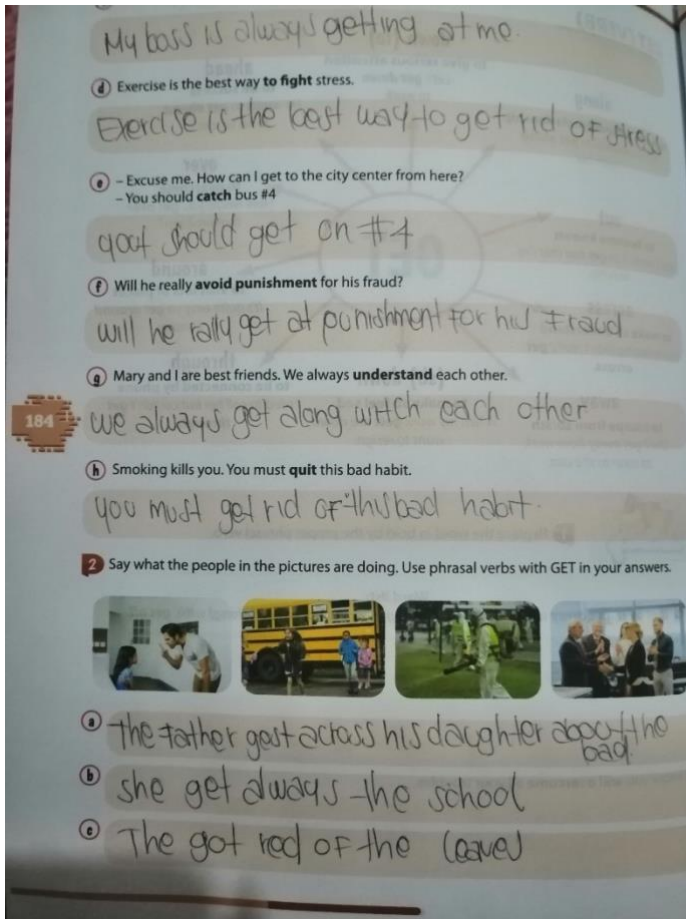 My boss is always getting at me.
d Exercise is the best way to fight stress.
Exercise is the best way to get rid of stress
e – Excuse me. How can I get to the city center from here?
– You should catch bus #4
should get on #4
f Will he really avoid punishment for his fraud?
will he rally get at punishment for his fraud
g Mary and I are best friends. We always understand each other.
184
we always get along witch each other
h Smoking kills you. You must quit this bad habit.
you must get rid of this bad habit.
2 Say what the people in the pictures are doing. Use phrasal verbs with GET in your answers.
a the father gest across his daughter about the
bad.
b she get always the school
c The got red of the leaves